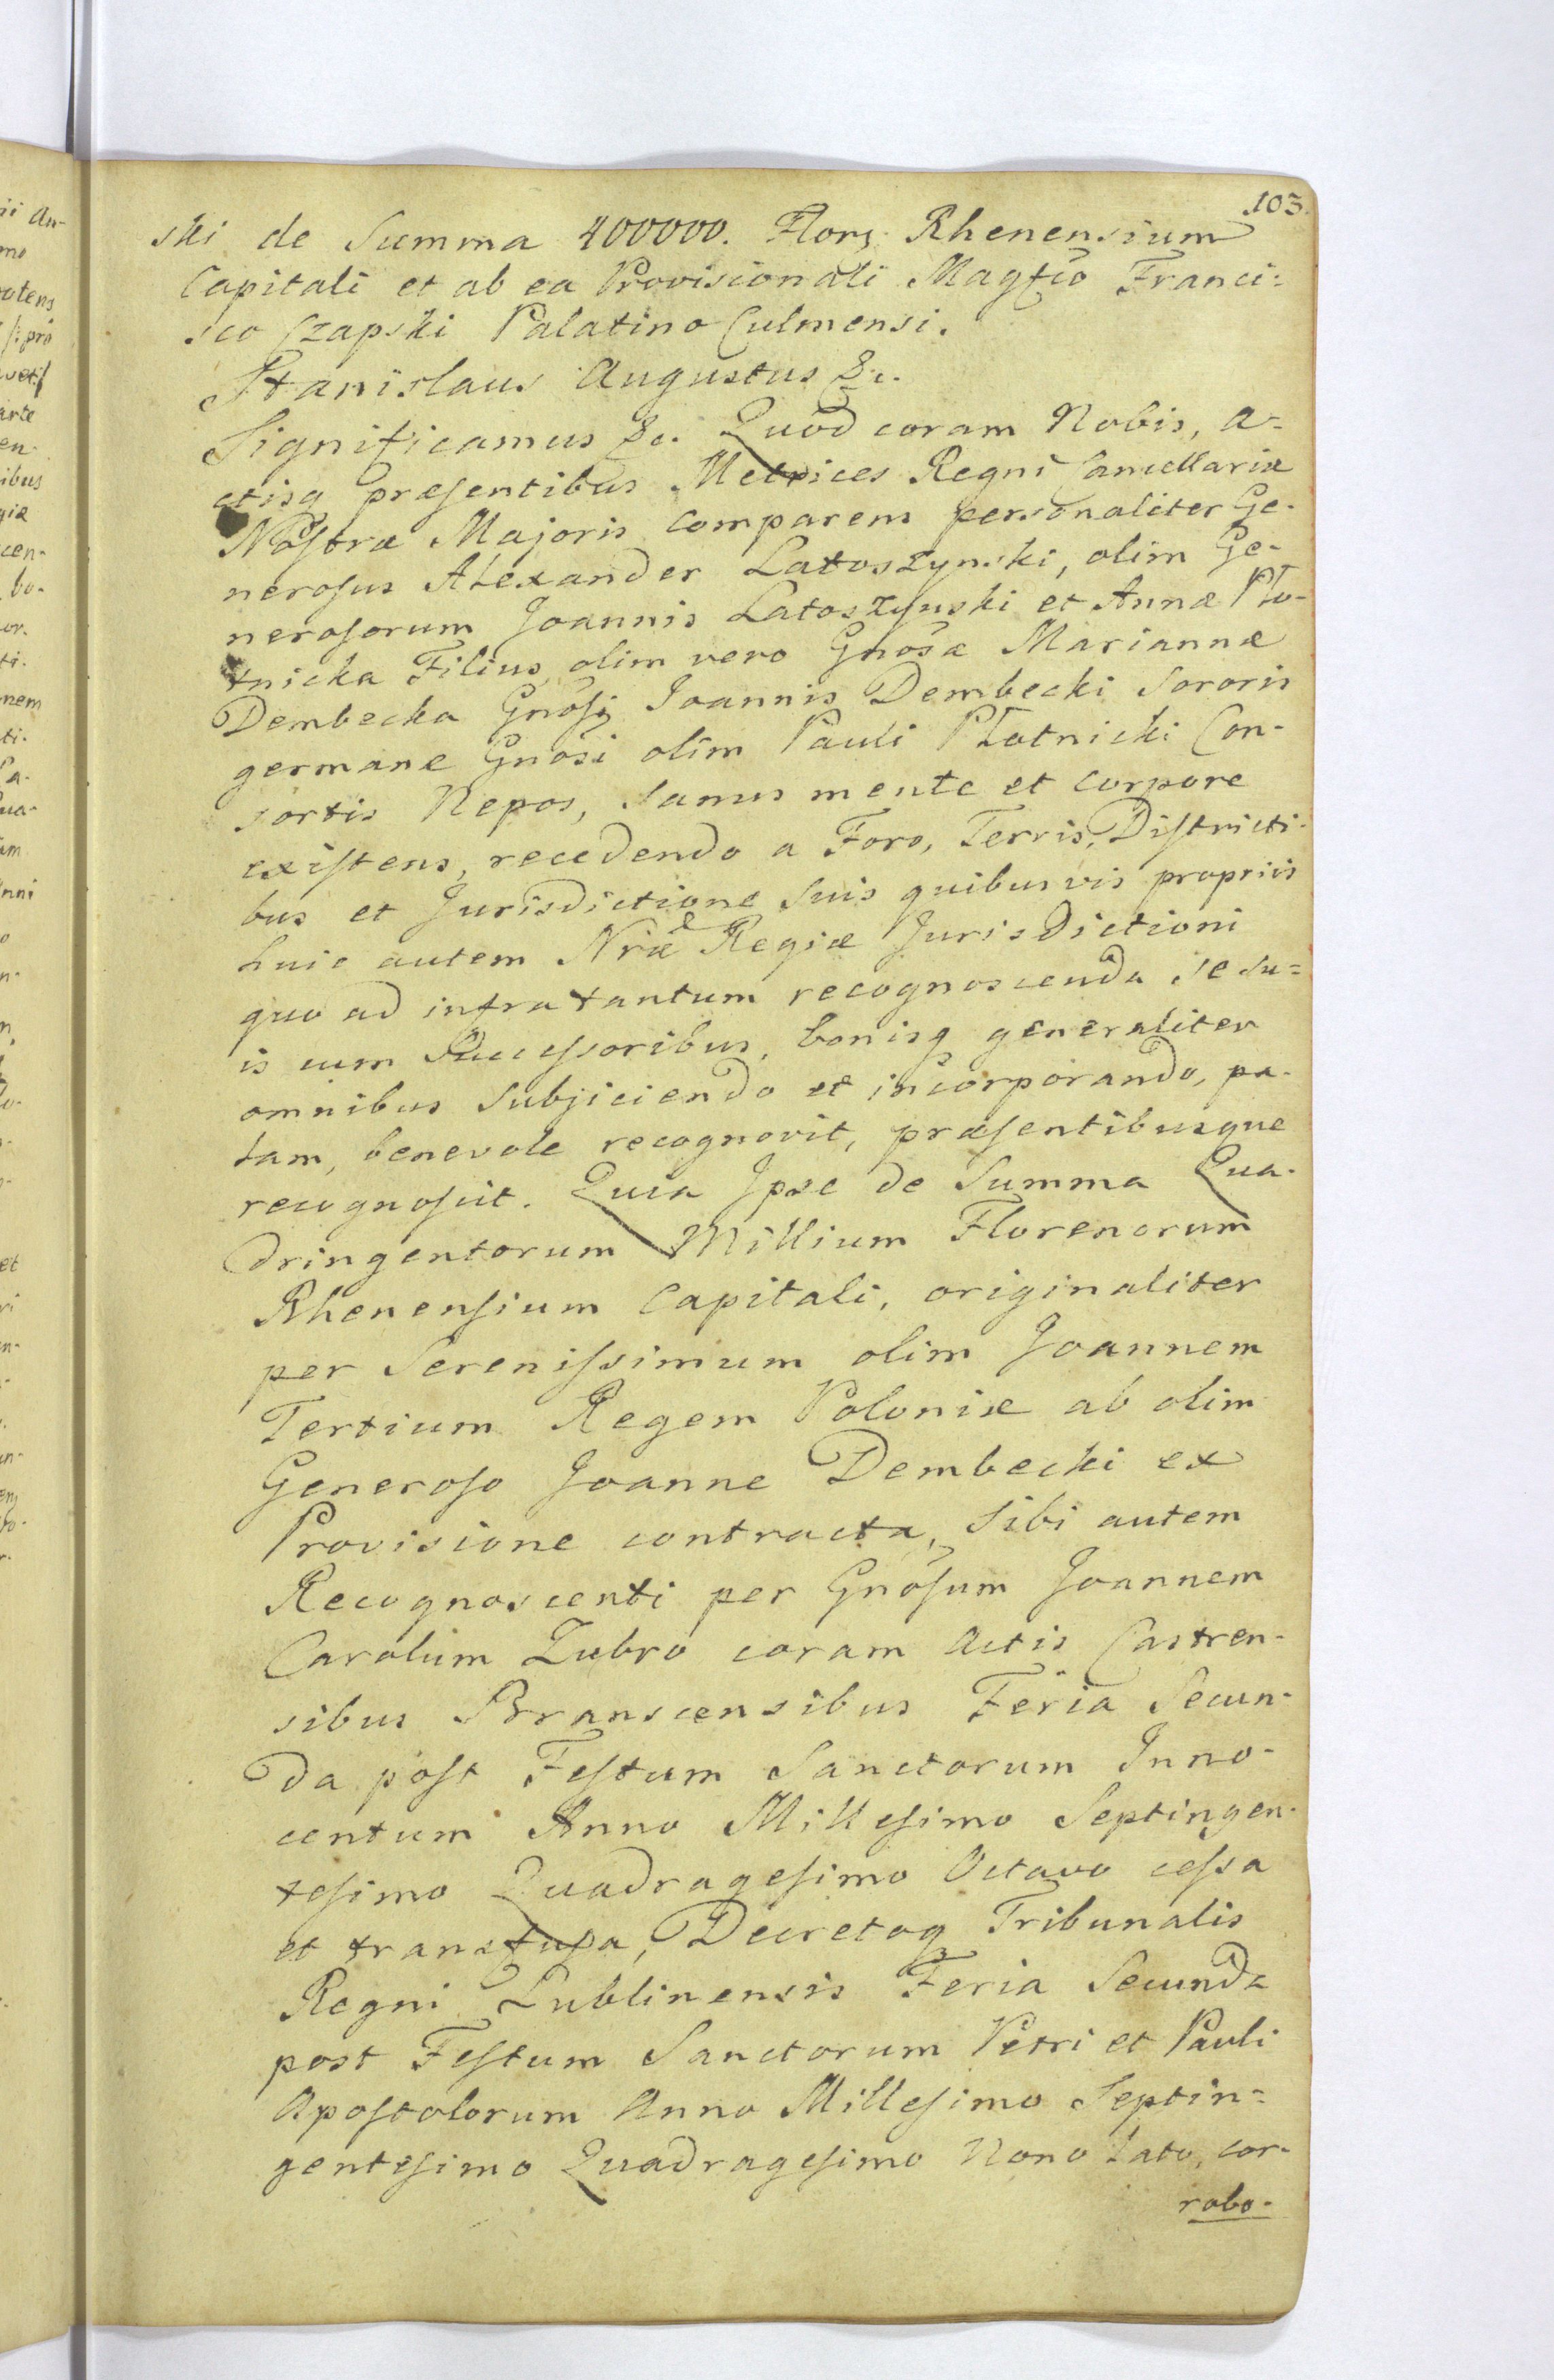 103.
ski de Summa 400000. Flors Rhenensium
Capitali et ab ea Provisionali Magfco Franci:
sco Czapski Palatino Culmensi.
Stanislaus Augustus &c.
Significamus &c. Quod coram Nobis, A-
ctisq præsentibus Metrices Regni Cancellariæ
Nostræ Majoris comparens personaliter Ge-
nerosus Alexander Latoszynski, olim Ge-
nerosorum Joannis Latoszynski et Annæ Pło-
tnicka Filius, olim vero Gnosæ Mariannæ
Dembecka Gnosi Joannis Dembecki Sororis
germanæ Gnosi olim Pauli Płotnicki Con-
sortis Nepos, sanus mente et corpore
existens, recedendo a Foro, Terris, Districti-
bus et Jurisdictione suis quibusvis propriis
huic autem Nræ Regiæ Jurisdictioni
quo ad infra tantum recognoscenda se su=
is cum Successoribus, bonisq generaliter
omnibus subjiciendo et incorporando, pa-
lam, benevole recognovit, præsentibusque
recognoscit. Quia Ipse de Summa Qua-
dringentorum Millium Florenorum
Rhenensium Capitali, originaliter
per Serenissimum olim Joannem
Tertium Regem Poloniæ ab olim
Generoso Joanne Dembecki ex
Provisione contracta, sibi autem
Recognoscenti per Gnosum Joannem
Carolum Zubro coram Actis Castren-
sibus Branscensibus Feria Secun-
da post Festum Sanctorum Inno-
centum Anno Millesimo Septingen-
tesimo Quadragesimo Octavo cessa
et transfusa, Decretoq Tribunalis
Regni Lublinensis Feria Secunda
post Festum Sanctorum Petri et Pauli
Apostolorum Anno Millesimo Septin=
gentesimo Quadragesimo Nono lato, cor-
robo-